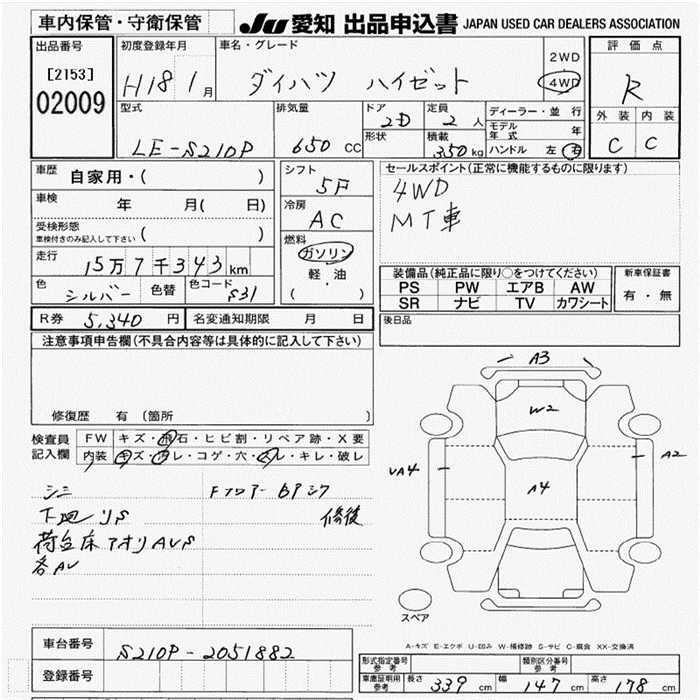 車内保管・守衛保管
JU 愛知 出品申込書 JAPAN USED CAR DEALERS ASSOCIATION
出品番号
[2153]
02009
初度登録年月
H18 1月
車名・グレード
ダイハツ ハイゼット
2WD
4WD
評価点
R
型式
LE-S210P
排気量
650 CC
ドア
2D
形状
定員
2人
積載
350kg
ディーラー・並行
モデル年式 年
ハンドル 左 右
外装 内装
C C
車歴
自家用・( )
車検
年 月( 日)
受検形態
車検付きのみ記入して下さい ( )
走行
15万7千343km
色
シルバー
色替
色コード
S31
シフト
5F
冷房
AC
燃料
ガソリン
軽・油
( ・ )
セールスポイント(正常に機能するものに限ります)
4WD
MT車
装備品(純正品に限り○をつけてください)
PS PW エアB AW
SR ナビ TV カワシート
新車保証書
有・無
後日品
R券 5,340円 名変通知期限 月 日
注意事項申告欄(不具合内容等は具体的に記入して下さい)
修復歴 有(箇所 )
検査員記入欄
FW キズ・飛石・ヒビ割・リペア跡・X要
内装 キズ・汚レ・コゲ・穴・スレ・キレ・破レ
シミ Fフロアー
下回りS 修後
荷台床アオリAUS
各AU
A3
W2
UA4
A4
A2
スペア
A-キズ E-エクボ U-凹み W-補修跡 S-サビ C-腐食 XX-交換済
車台番号
S210P-2051882
登録番号
形式指定番号 参考
類別区分番号 参考
車庫証明用 参考 長さ 339cm 幅 147cm 高さ 178cm